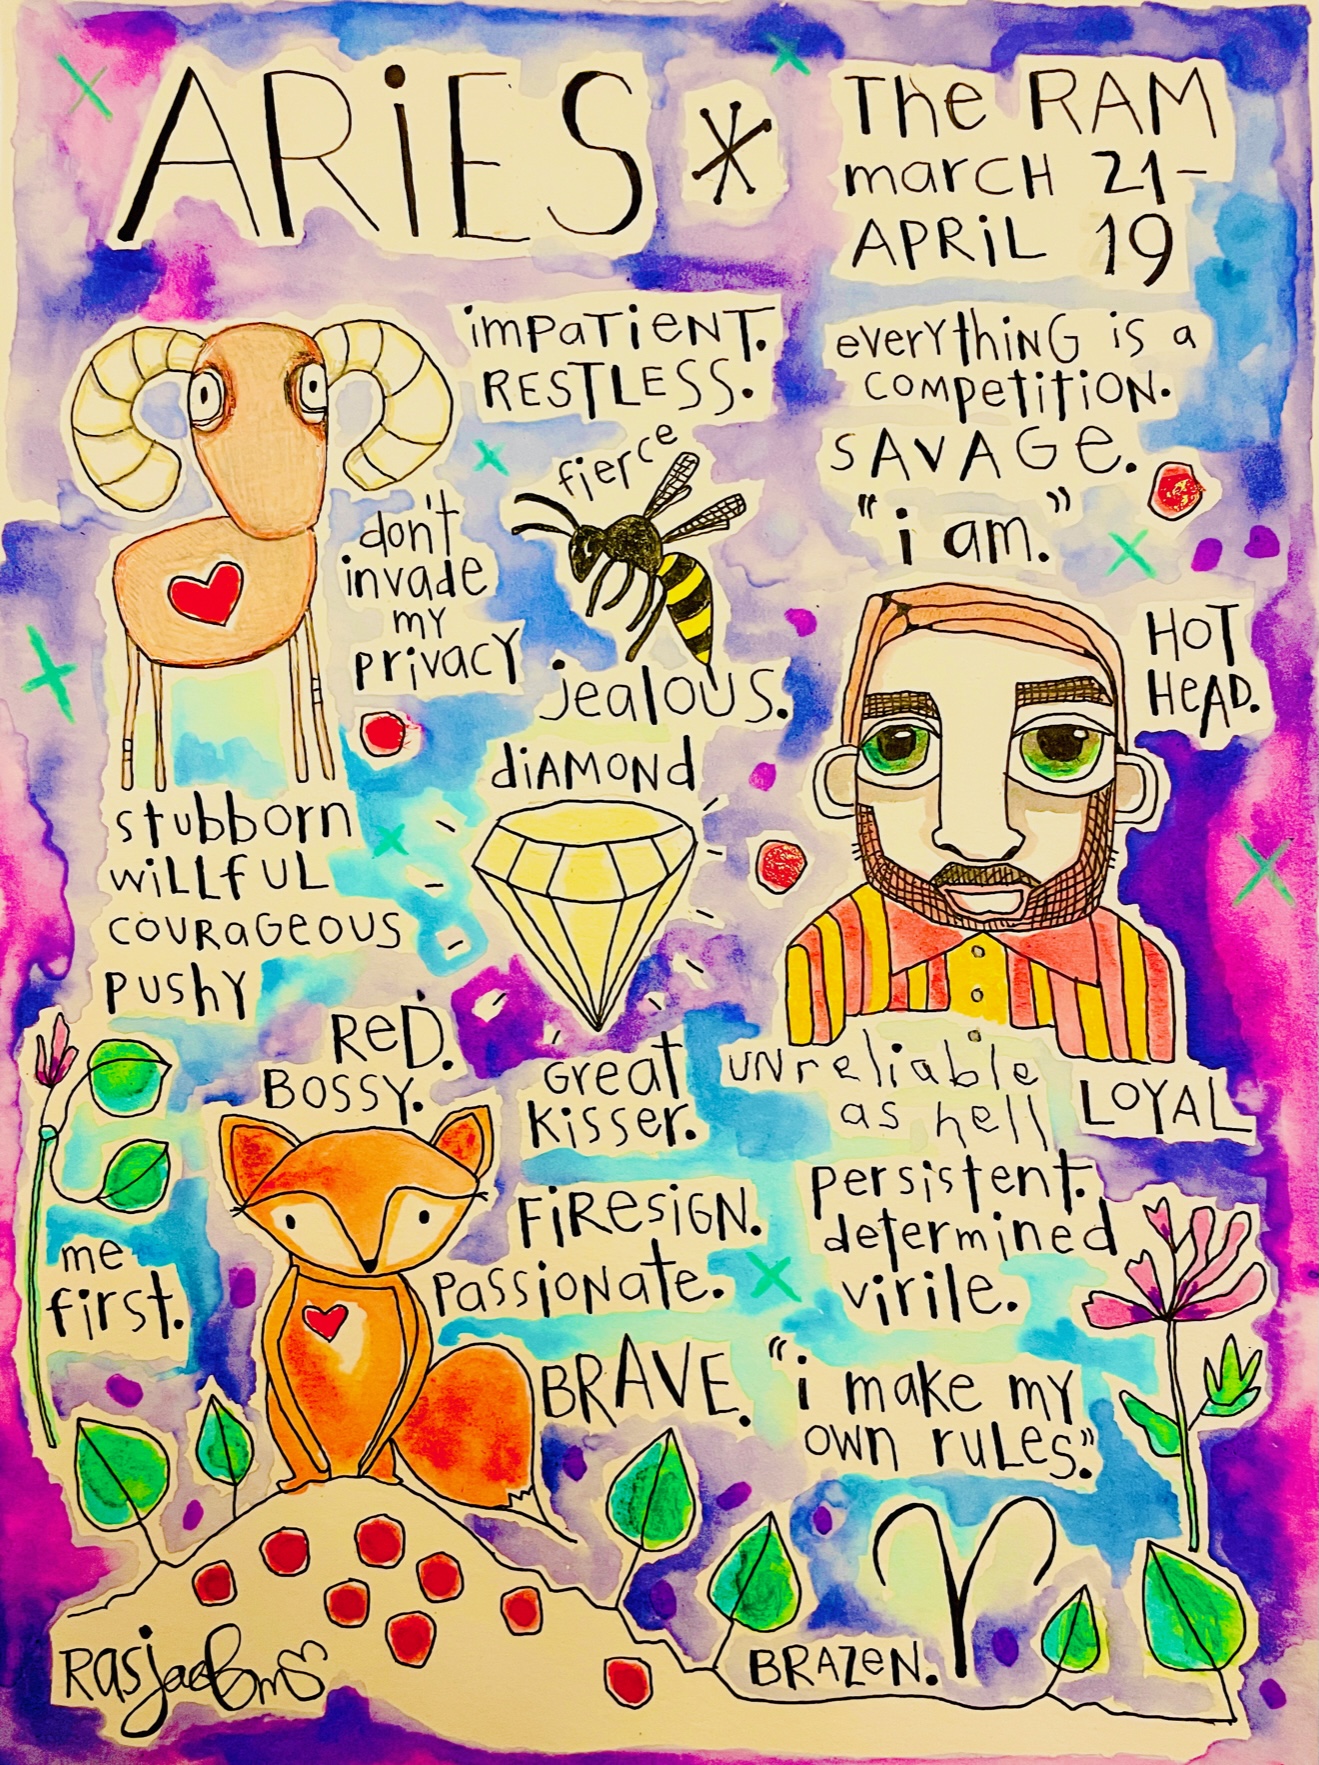 ARiES
The RAM
marcH 21-
APRiL 19
impaTieNT.
RESTLESS.
everythiNG is a
competitiON.
SAVAGe.
"i am."
fierce
don't
invade
my
privacy
HOT
HeAD.
jealous.
diAMONd
stubborn
wiLLfUL
couRaGeous
pushy
ReD.
BOSSY.
Great
kisser.
UNreliable
as hell
LOYAL
me
first.
FiResiGN.
passioNate.
persistent.
determined
virile.
BRAVE.
"i make my
own rules."
BRAZeN.